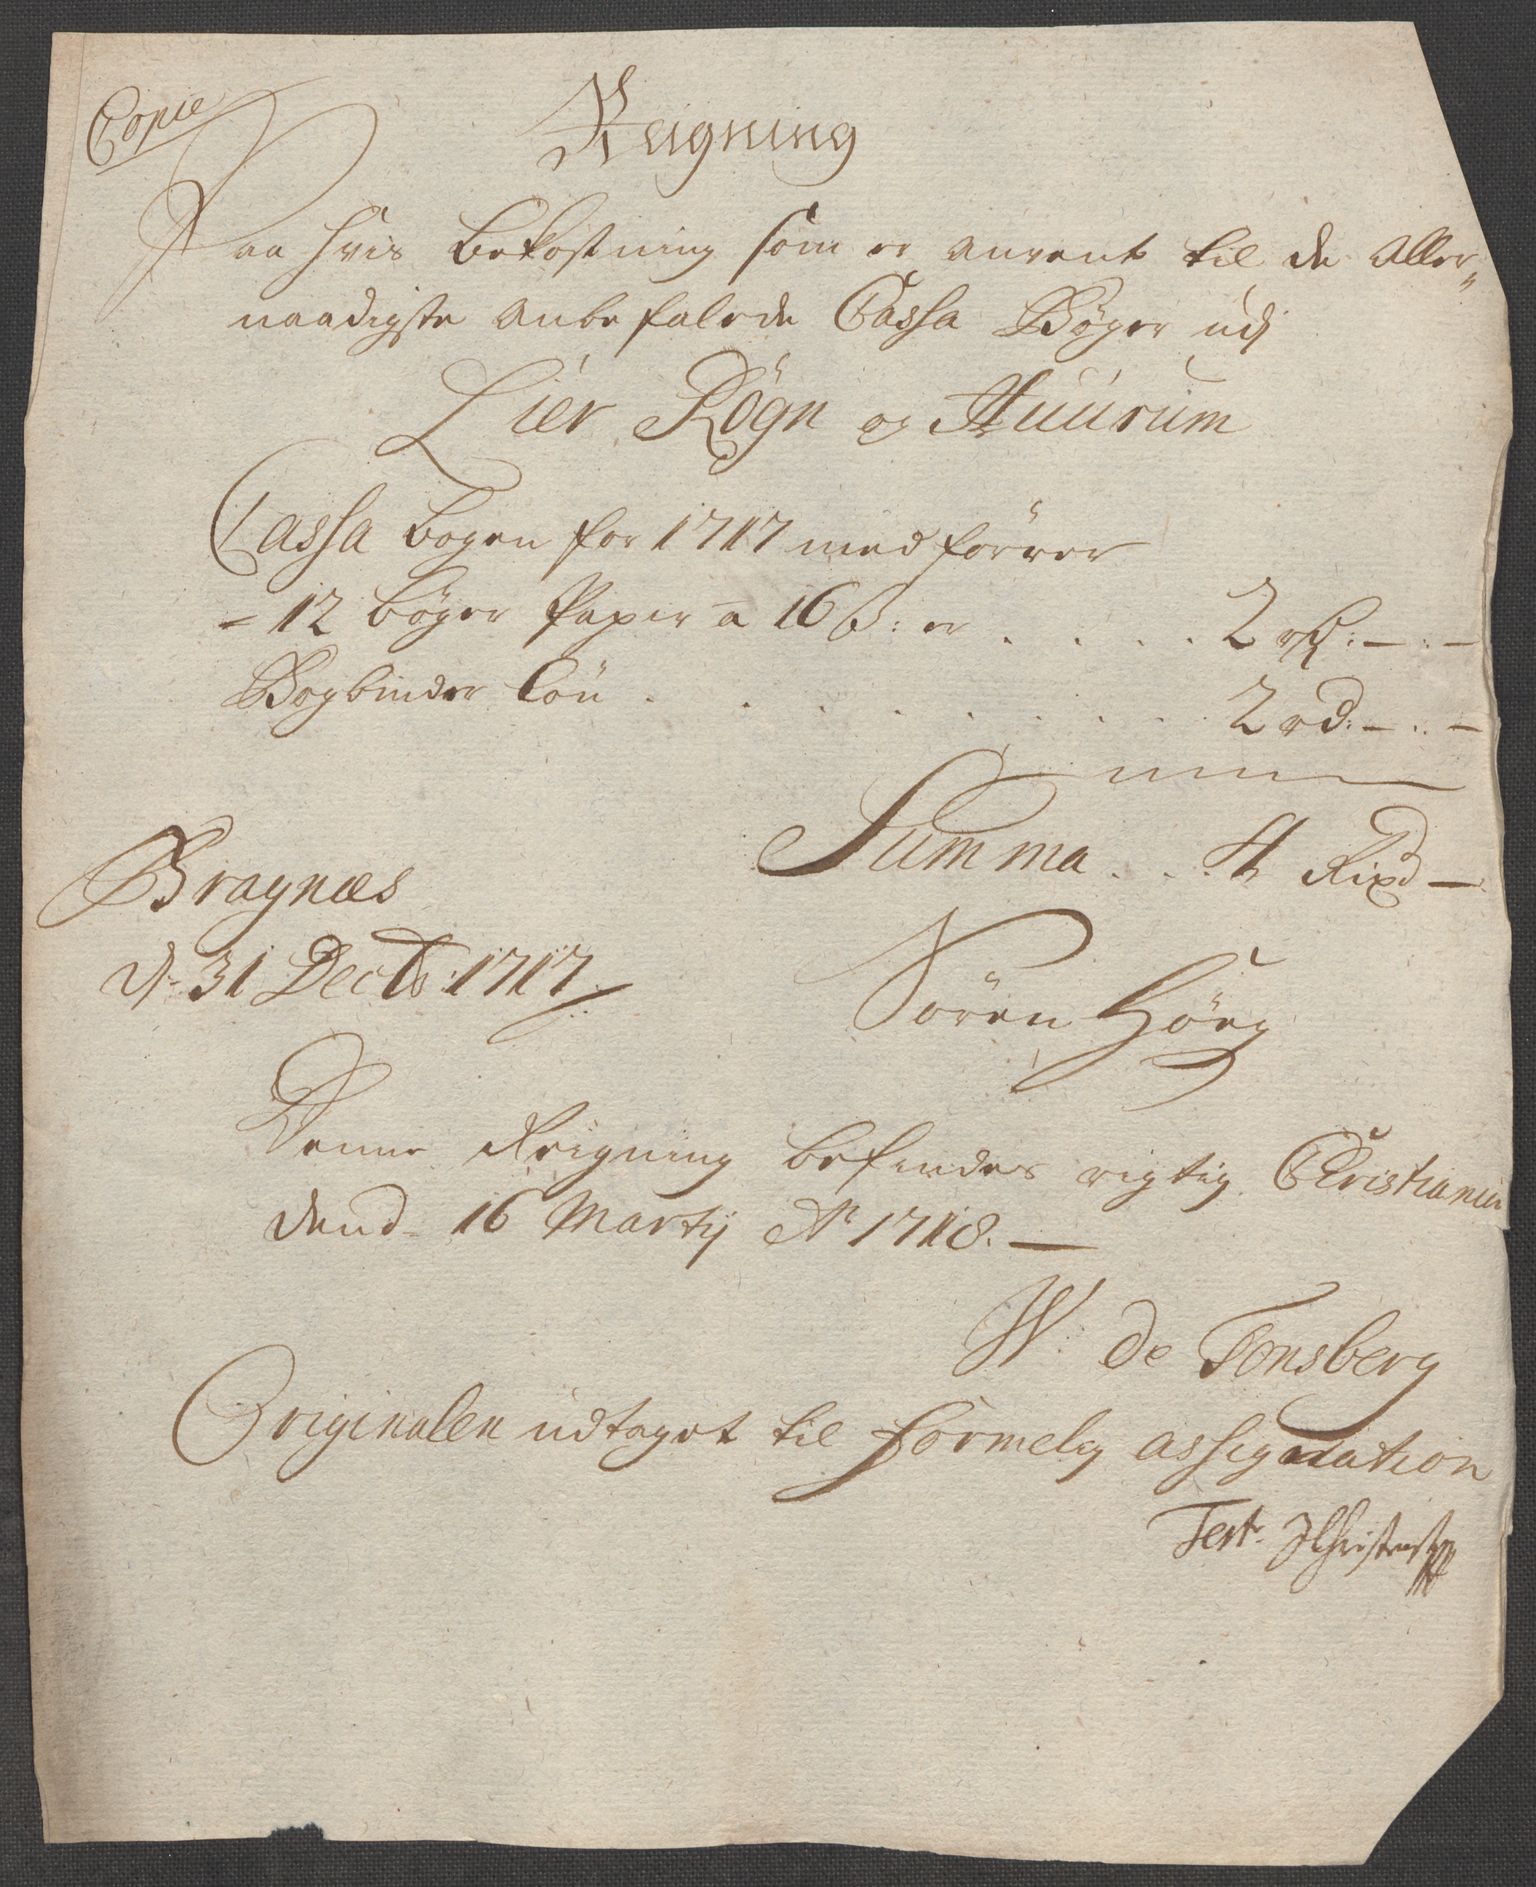 Copie
Reigning
Paa hvis bekostning som er anvent til de Aller„
naadigste anbefalede Cassa Bøger udj
Lier Røgn og Huurum
Cassa bogen for 1717 medførrer
- 12 bøger Papir a 16 β: er . . . . 2 rd: — : —
Bogbinder løn . . . . . . . . 2 rd: — : —
Summa . . . 4 Rixd —
Bragnæs
d. 31 Decb: 1717
Søren Høeg
Denne Reigning befindes rigtig. Christiania
dend 16 Martij Ao 1718. —
W: de Tonsberg
Originalen udtaget til formelig assignation
Test. JChristens